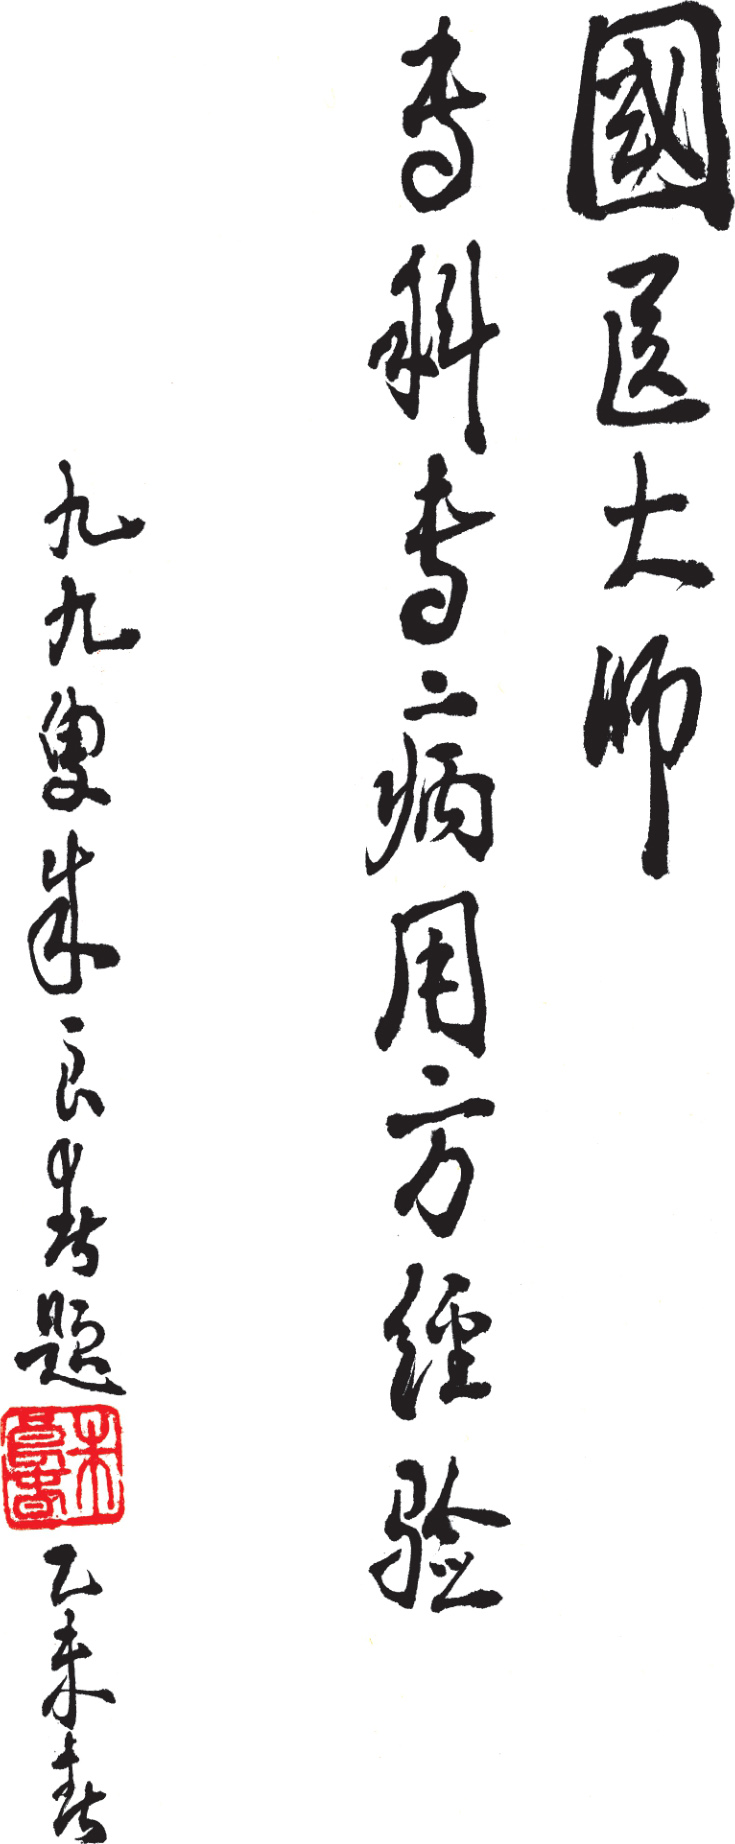 國医大师
专科专病用方經验
九九叟朱良春题
朱良春
乙未春